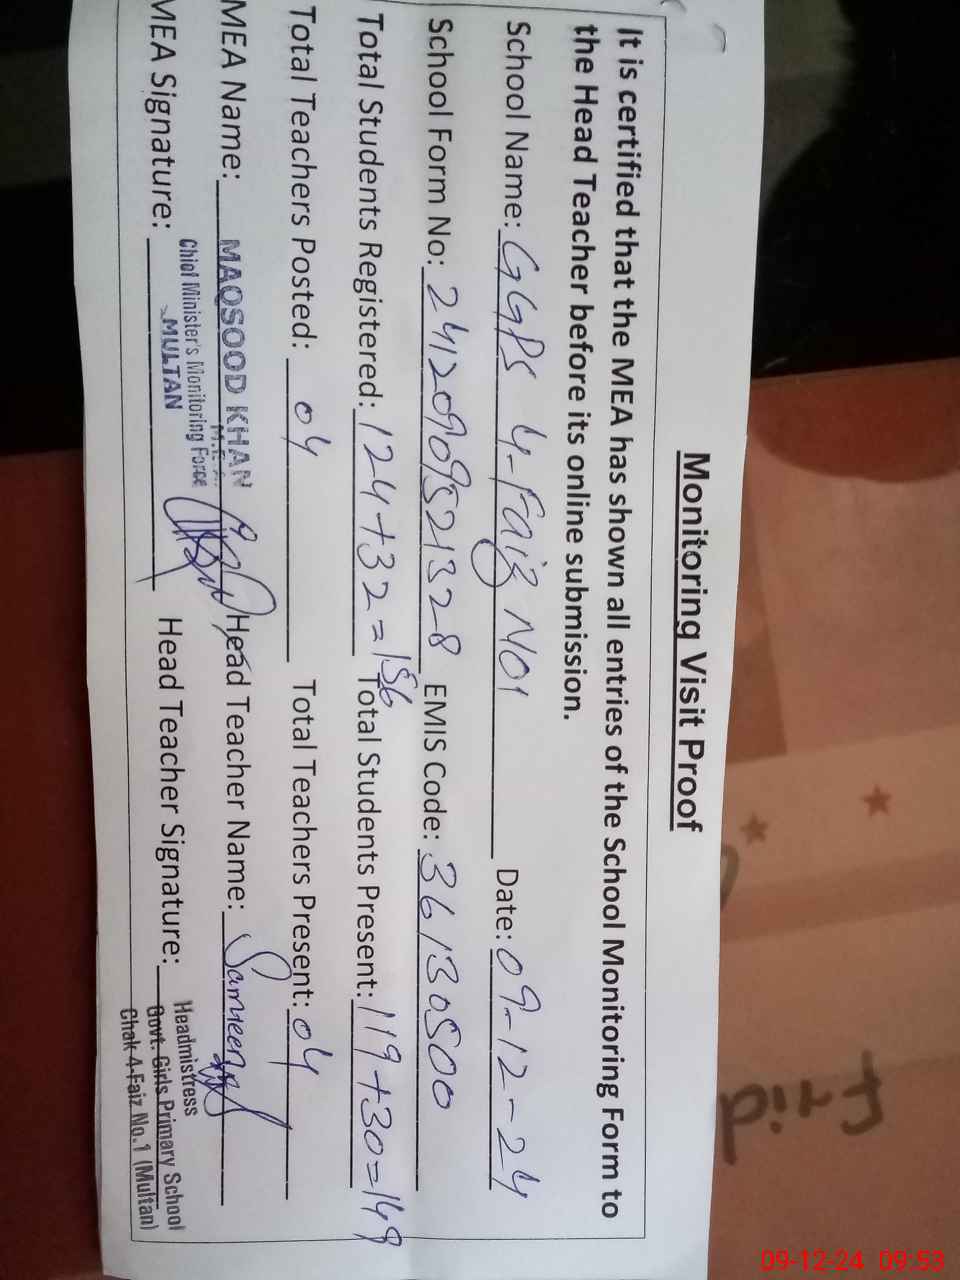 Monitoring Visit Proof
It is certified that the MEA has shown all entries of the School Monitoring Form to
the Head Teacher before its online submission.
School Name: GGPS 4-Faiz No1 Date: 09-12-24
School Form No: 24120909521328 EMIS Code: 36130500
Total Students Registered: 124+32=156 Total Students Present: 119+30=149
Total Teachers Posted: 04 Total Teachers Present: 04
MEA Name: MAQSOOD KHAN Head Teacher Name: Samreen
M.E.A.
Chief Minister's Monitoring Force
MULTAN
MEA Signature: Head Teacher Signature:
Headmistress
Govt. Girls Primary School
Chak 4-Faiz No.1 (Multan)
Frid
09-12-24 09:53